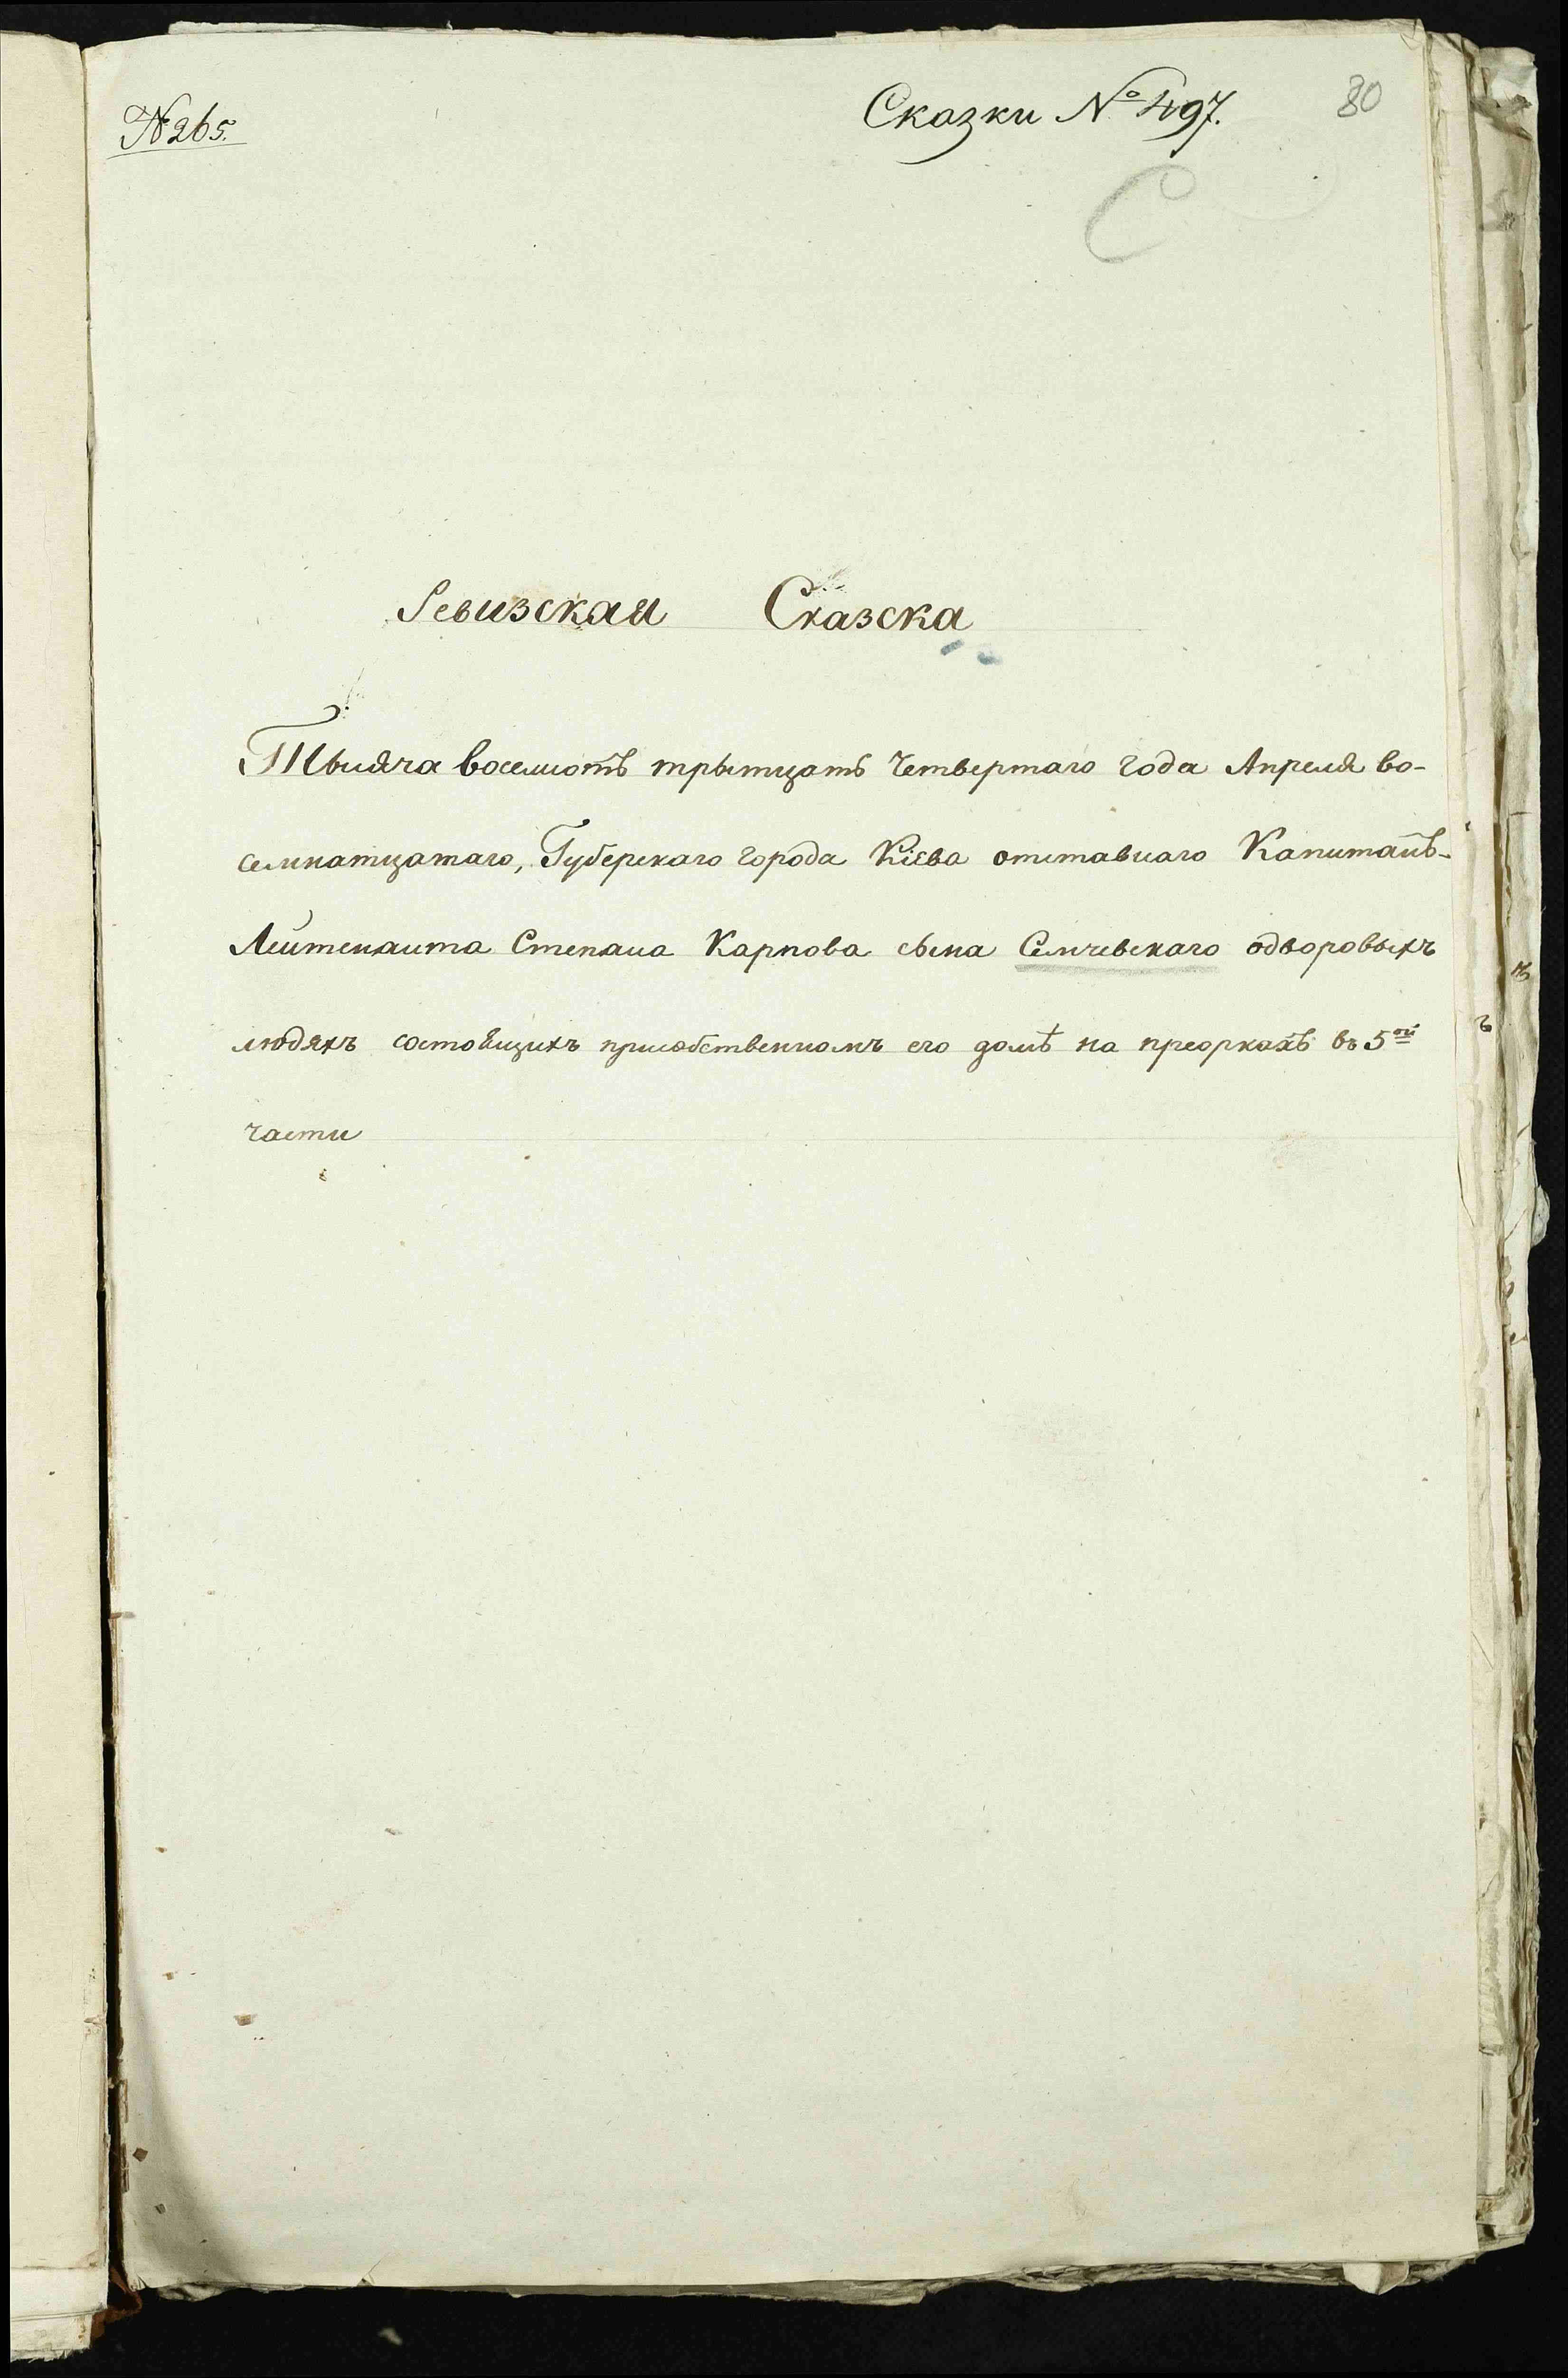 № 265.
Сказки № 497.
80
С
Ревизская Сказска
Тысяча восемсотъ трытцать Четвертаго года Апреля во-
семнатцатаго, Губерскаго города Кіева отставнаго Капитанъ-
Лейтенанта Степана Карпова сына Семчевскаго одворовыхъ
людяхъ состоящихъ присобственномъ его домѣ на преоркахъ въ 5ой
части